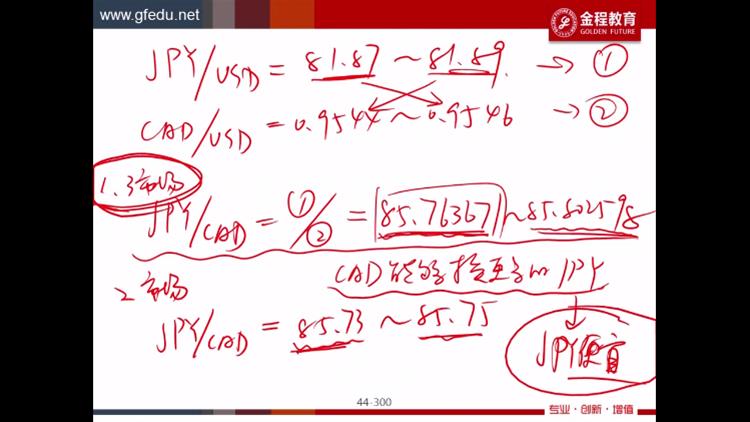 www.gfedu.net
金程教育
GOLDEN FUTURE
JPY/USD = 81.87 ~ 81.89 → ①
CAD/USD = 0.9544 ~ 0.9546 → ②
1.3市场
JPY/CAD = ①/② = 85.76367 ~ 85.80259
CAD能够换更多的JPY
2市场
JPY/CAD = 85.73 ~ 85.75
JPY便宜
44-300
专业·创新·增值